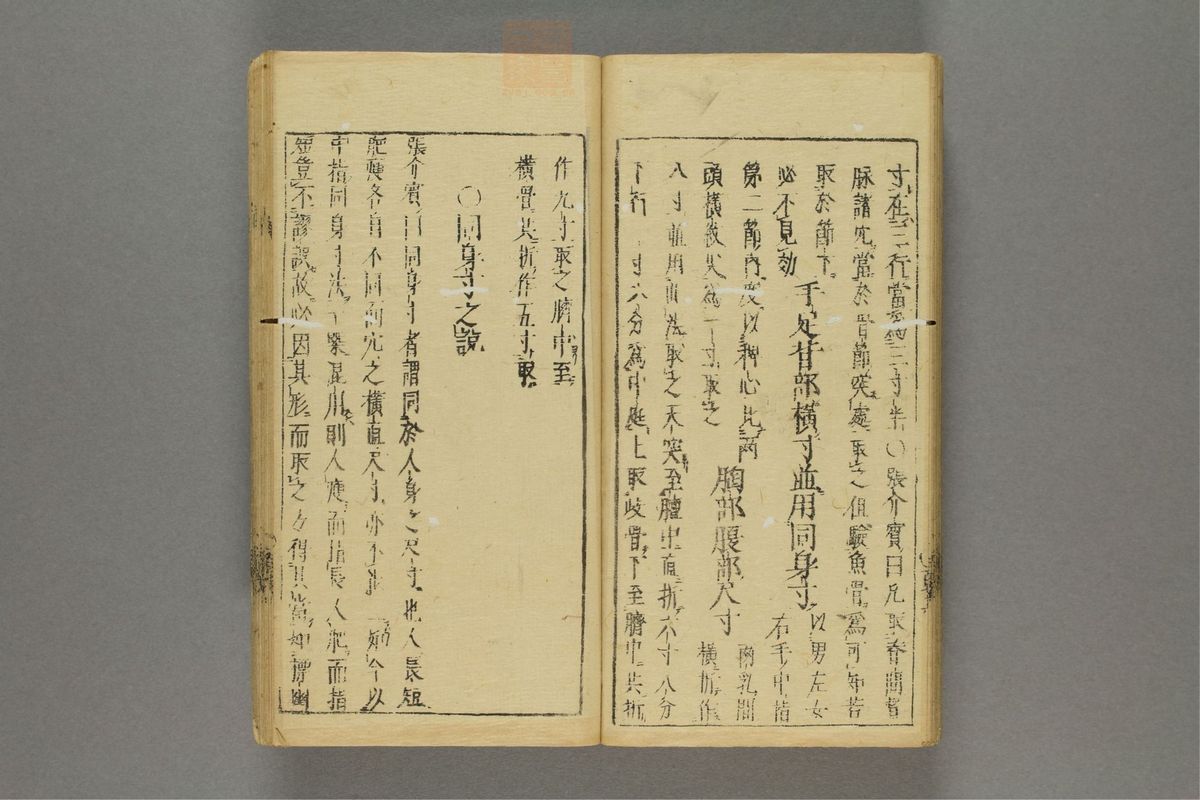 寸在三行當三寸半○張介賓曰凡取脊間督
脉諸穴當於骨節突處取之但驗魚骨爲可知若
取於節下
必不見効
手足部橫寸並用同身寸
以男左女
右手中指
第二節內度以稈心比兩
頭橫紋尖爲一寸取之
胸部腹部尺寸
兩乳間
橫折作
八寸並用此法取之天突至膻中直折六寸八分
下行一寸六分爲中庭上取歧骨下至臍中共折
作九寸取之臍中至
橫骨共折作五寸取
○同身寸之說
張介賓曰同身寸者謂同於人身之尺寸也人長短
肥瘦各自不同而穴之橫直尺寸亦不能一如今以
中指同身寸法一槩混用則人瘦而指長人肥而指
短豈不謬誤故必因其形而取之方得其當如標幽